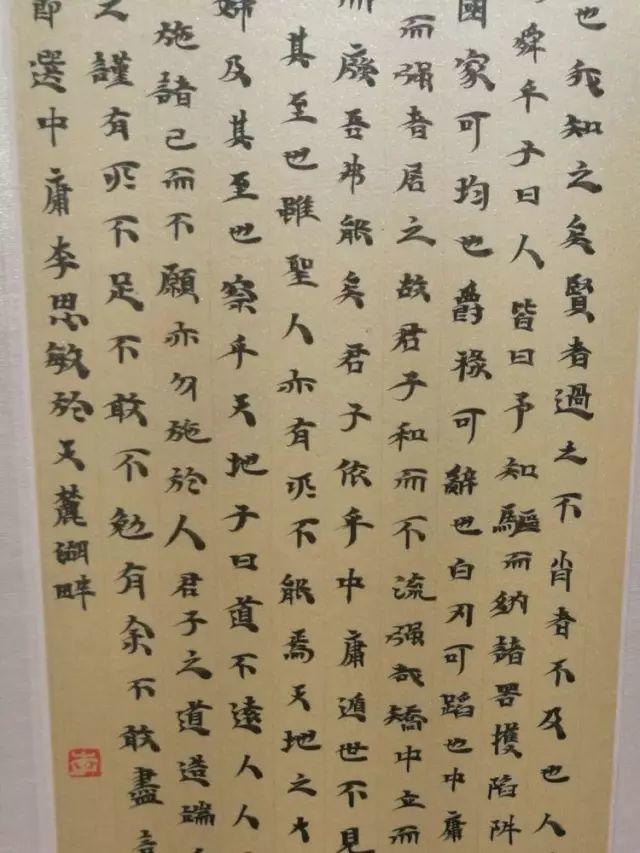 也我知之矣賢者過之不肖者不及也人
舜乎子曰人皆曰予知驅而納諸罟擭陷阱
國家可均也爵祿可辭也白刃可蹈也中庸
而强者居之故君子和而不流强哉矯中立而
而廢吾弗能矣君子依乎中庸遁世不見
其至也雖聖人亦有所不能焉天地之大
婦及其至也察乎天地子曰道不遠人人
施諸己而不願亦勿施於人君子之道造端
之謹有所不足不敢不勉有余不敢盡言
節選中庸李思敏於天麓湖畔